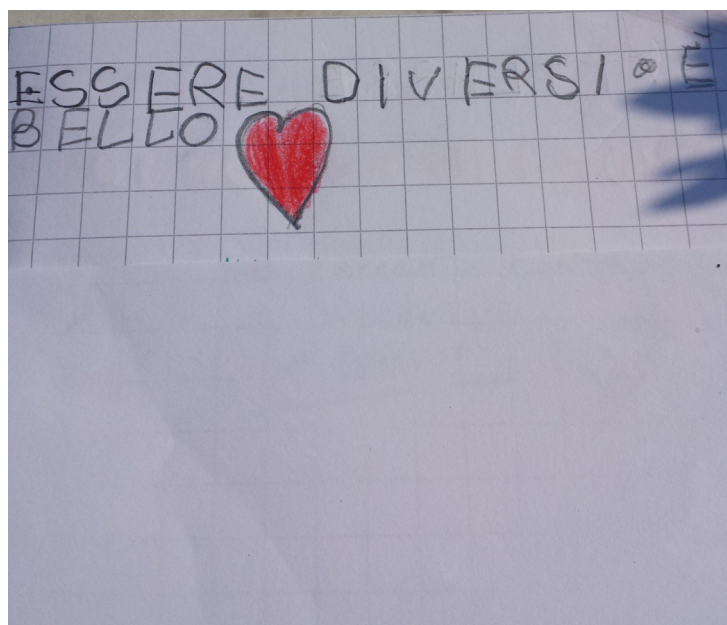 ESSERE DIVERSI È
BELLO